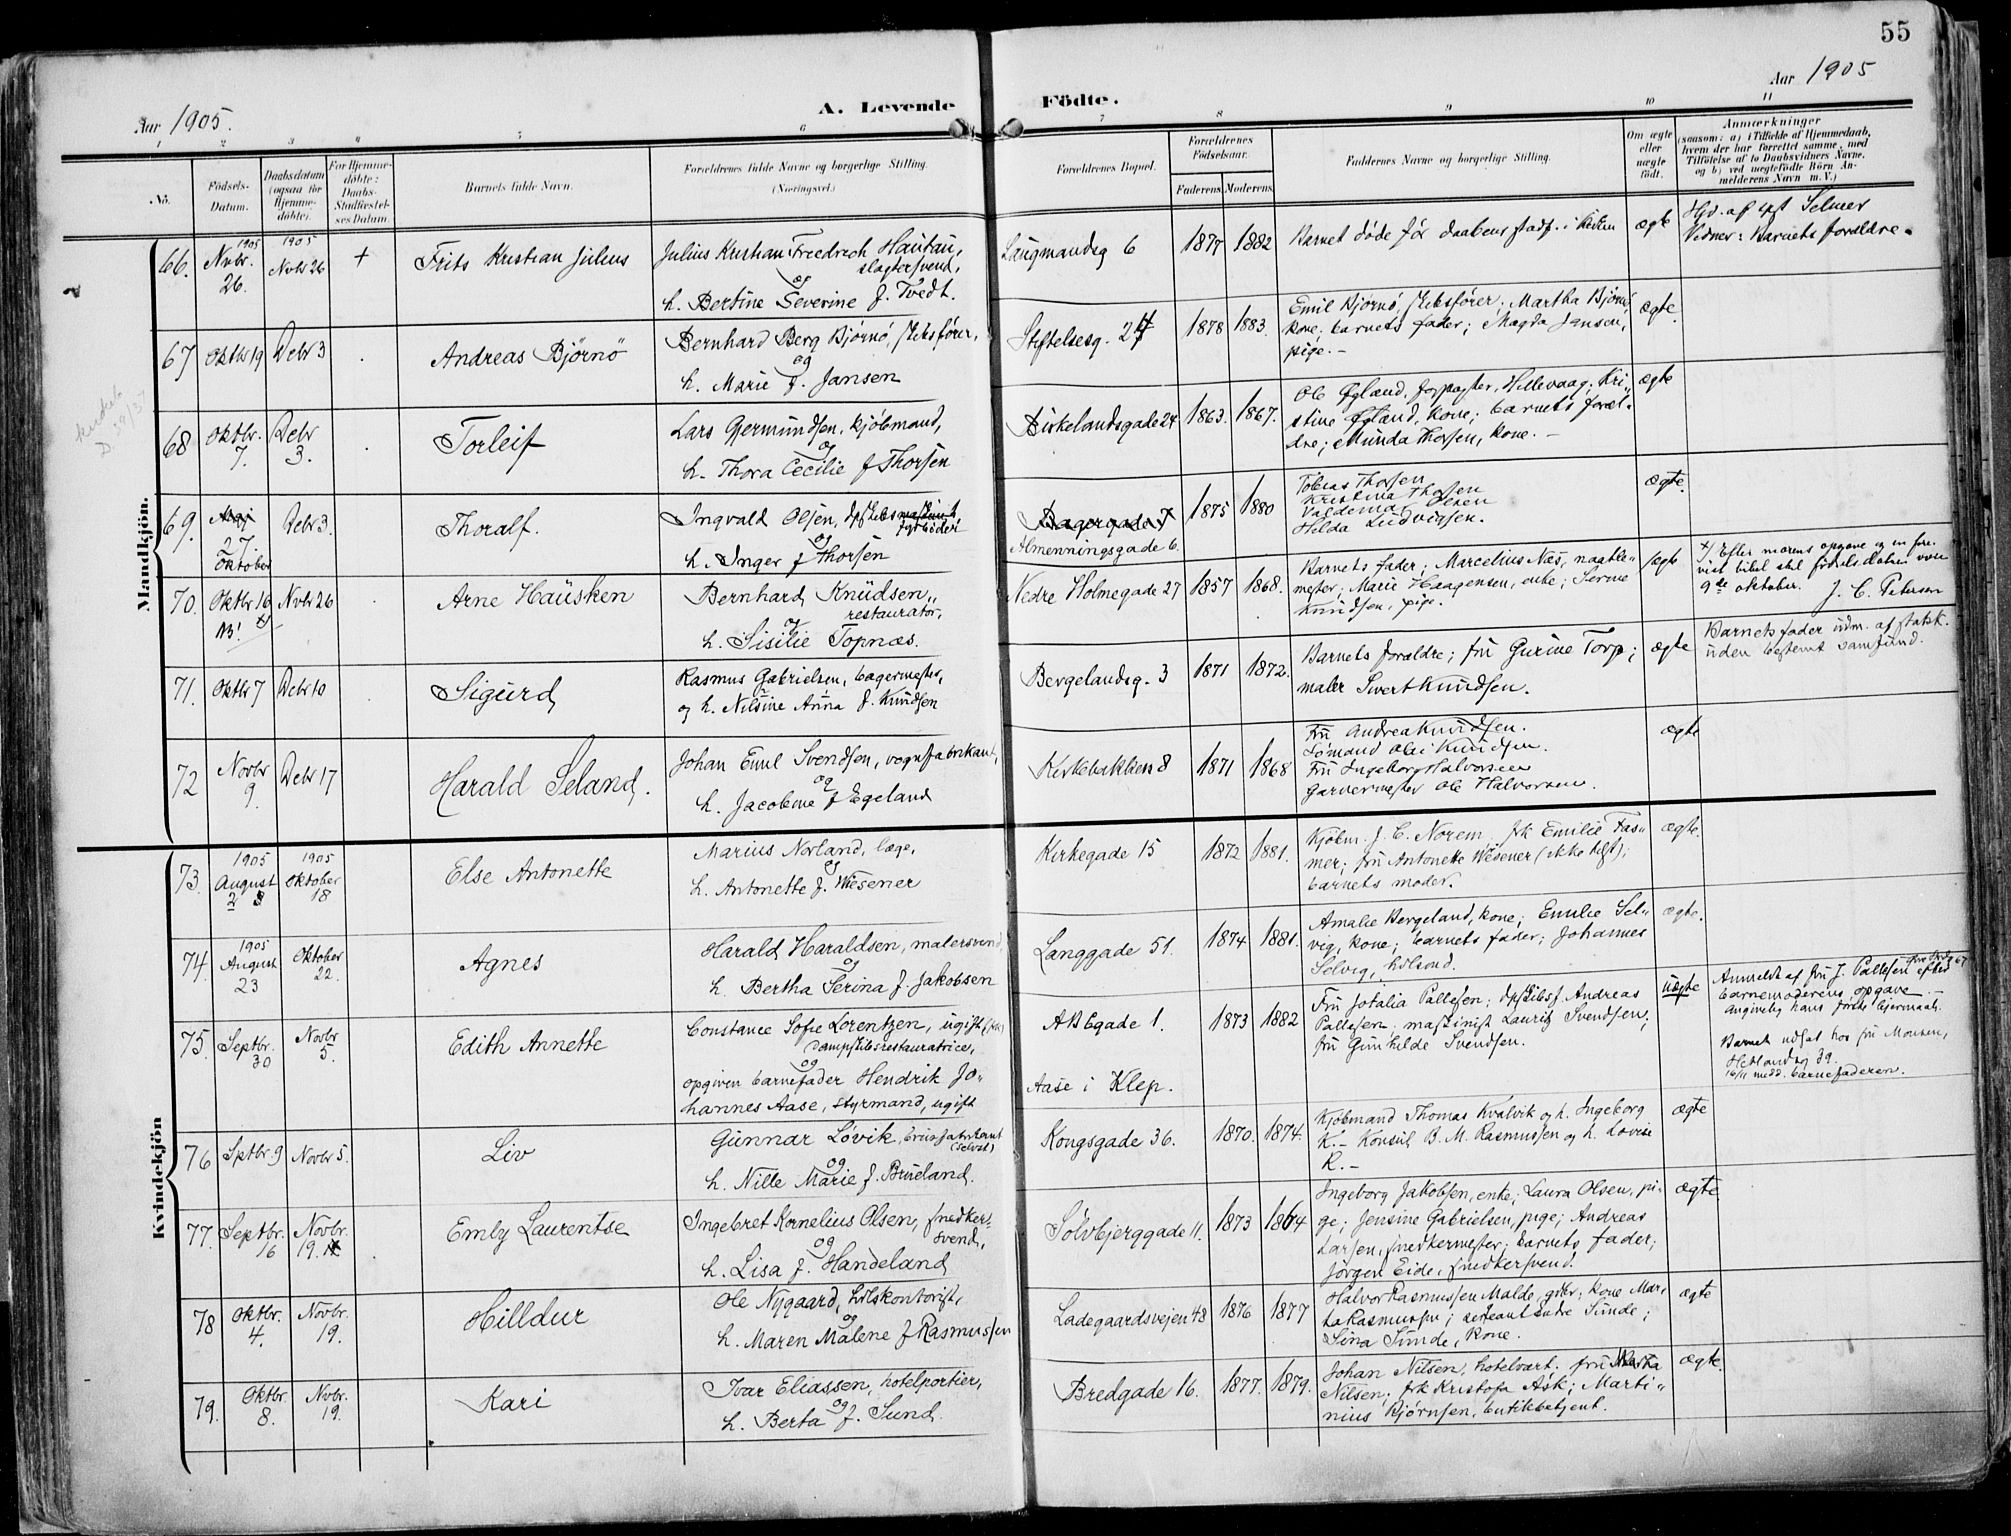 55
Aar 1905.
A. Levende
Födte.
Aar 1905
1 2 3 4 5 6
7 8 9 10 11
No.
Födsels-Datum.
Daabsdatum (ogsaa for Hjemme-döbte).
For Hjemme-döbte: Daabs-Stadfæstel-ses Datum.
Barnets fulde Navn.
Forældrenes fulde Navne og borgerlige Stilling. (Næringsvei.)
Forældrenes Bopæl.
Forældrenes Födselsaar.
Faderens. Moderens.
Faddernes Navne og borgerlige Stilling.
Om ægte eller uægte födt.
Anmærkninger
(saasom: a) i Tilfælde af Hjemmedaab,
hvem der har forrettet samme, med
Tilföielse af to Daabsvidners Navne,
og b) ved uægtefödte Börn An-
melderens Navn m. V.)
Mandkjön.
66. 1905 Nvbr. 26. 1905 Nvbr 26 + Frits Kristian Julius
Julius Kristian Friedrich Hautau,
slagtersvend,
og
h. Bertine Severine f. Tvedt.
Laugmandsg 6 1877 1882
Barnet døde før daabens stadf. i kirken
ægte
Hjd. af Selmer
Vidner: Barnets forældre.
67 Oktbr 19 Debr 3 Andreas Bjørnø
Bernhard Berg Bjørnø, skibsfører,
og
h. Marie f. Jansen
Stiftelsesg. 24 1878 1883.
Emil Bjørnø, skibsfører; Martha Bjørnø,
kone; barnets fader; Magda Jansen,
pige.-
ægte.
68 Oktbr. 7. Debr 3. Torleif
Lars Gjermundsen, kjøbmand,
og
h. Thora Cecilie f Thorsen
Birkelandsgade 24 1863. 1867.
Ole Øgland, forpagter, Hillevaag; Kri-
stine Øgland, kone; barnets foræl-
dre; Munda Thorsen, kone.-
ægte
69. Mai 27 Oktober Debr 3. Thoralf.
Ingvald Olsen,
fyrbøder
og
h. Inger f Thorsen
Bagergade 7
Almenningsgade 6.
1875 1880
Tobias Thorsen
Kristina Thorsen
Valdemar Olsen
Hilda Ludvigsen.
ægte.
70. Oktbr 16 NB! x) Nvbr 26 Arne Hausken
Bernhard Knudsen,
restauratør,
og
h. Sisilie Topnæs.
Nedre Holmegade 27 1857 1868.
Barnets fader; Marcelius Næs, naatle-
mester; Marie Haagensen, enke; Serine
Knudsen, pige.
ægte
x) Efter morens opgave og en fore-
vist bibel skal fødselsdatoen være
9de oktober. J. C. Petersen
71. Oktbr 7 Debr 10 Sigurd
Rasmus Gabrielsen, bagermester,
og h. Nilsine Anna f. Knudsen
Bergelandsg. 3 1871 1872.
Barnets forældre; fru Gurine Torp;
maler Sivert Knudsen.
ægte
Barnets fader udm. af statsk.
uden bestemt samfund.
72 Novbr 9. Debr 17 Harald Seland.
Johan Emil Svendsen, vognfabrikant,
og
h. Jacobine f Egeland
Kirkebakken 8 1871 1868
Fru Andrea Knudsen.
Sømand Ole Knudsen.
Fru Ingeborg Halvorsen
Garvermester Ole Halvorsen.
ægte
Kvindekjön
73. 1905 August 23 1905 Oktober 18 Else Antonette
Marius Norland, læge,
og
h. Antonette f. Wesener
Kirkegade 15 1872 1881.
Kjøbm. J. C. Norem; frk Emilie Fas-
mer; fru Antonette Wesener (ikke tilst);
barnets moder.
ægte.
74. 1905 August 23 Oktober 22. Agnes
Harald Haraldsen, malersvend,
og
h. Bertha Serina f. Jakobsen
Langgade 51. 1874 1881.
Amalie Bergeland, kone; Emilie Sel-
vig, kone; barnets fader; Johannes
Selvig,
ægte.
75. Septbr. 30 Novbr 5. Edith Annette
Constance Sofie Lorentzen, ugift
Dampskibsrestauratrice,
og
opgiven barnefader Hendrik Jo-
hannes Aase, styrmand, ugift
ABCgade 1. 1873 1882
Aase i Klep.
Fru Jotalia Pallesen; dpskibsf. Andreas
Pallesen; maskinist Lauritz Svendsen;
fru Gunhilde Svendsen.
uægte
Anmeldt af fru J. Pallesen efter
barnemoderens opgave
angivelig hans første leiermaal.
Barnet udsat hos fru Monsen,
Hetlandsg 39.
16/11 medd. barnefaderen.
76 Sptbr 9 Novbr 5. Liv
Gunnar Løvik, brusfabrikant
(Selvst)
og
h. Nille Marie f. Brueland.
Kongsgade 36. 1870. 1874.
Kjøbmand Thomas Kvalvik og h. Ingeborg
K.- Konsul B. M. Rasmussen og h. Lovise
R.-
ægte
77. Septbr. 16 Novbr. 19. Emly Laurentse
Ingebret Kornelius Olsen, snedker-
svend,
og
h. Lisa f. Handeland
Sølvbjerggade 11. 1873 1864
Ingeborg Jakobsen, enke; Laura Olsen, pi-
ge; Jensine Gabrielsen, pige; Andreas
Larsen, snedkermester; barnets fader;
Jørgen Eide, snedkersvend.
ægte
78 Oktbr. 4. Novbr. 19. Hilldur
Ole Nygaard, hdlskontorist,
og
h. Maren Malene f Rasmussen
Ladegaardsveien 48 1876 1877
Halvor Rasmussen Malde, grbr; kone Mar-
ta Rasmussen; sersjeant Endre Sunde;
Sina Sunde, kone.
ægte
79. Oktbr. 8. Nvbr. 19. Kari
Ivar Eliassen, hotelportier,
og
h. Berta f. Sund.
Bredgade 16. 1877. 1879.
Johan Nilsen, hotelvært; fru Marta
Nilsen; frk Kristofa Ask; Marti-
nius Bjørnsen, butikbetjent.
ægte.